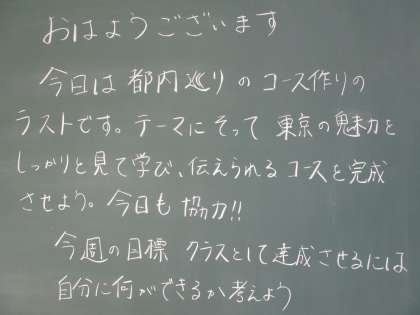 おはようございます
今日は都内巡りのコース作りの
ラストです。テーマにそって東京の魅力を
しっかりと見て学び、伝えられるコースを完成
させよう。今日も協力!!
今週の目標 クラスとして達成させるには
自分に何ができるか考えよう